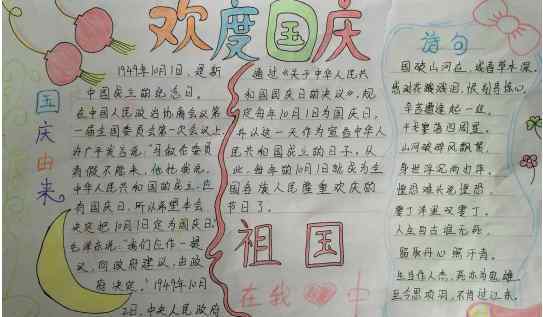 欢度国庆
国庆由来
1949年10月1日，是新
中国成立的纪念日。
在中国人民政治协商会议第
一届全国委员会第一次会议上
中华人民共和国的成立，应
有国庆日，所以希望本会
决定把10月1日定为国庆日。
毛泽东说："我们应作一提
议，向政府建议，由政
府决定。"1949年10月
2日，中央人民政府
通过《关于中华人民共
和国国庆日的决议》，规
定每年10月1日为国庆日，
并以这一天作为宣告中华人
民共和国成立的日子。从
此，每年的10月1日就成为全
国各族人民隆重欢庆的
节日了。
祖国
在我心中
诗句
国破山河在，城春草木深。
感时花溅泪，恨别鸟惊心。
辛苦遭逢起一经，
干戈寥落四周星。
山河破碎风飘絮，
身世浮沉雨打萍。
惶恐滩头说惶恐，
零丁洋里叹零丁。
人生自古谁无死，
留取丹心照汗青。
生当作人杰，死亦为鬼雄。
至今思项羽，不肯过江东。